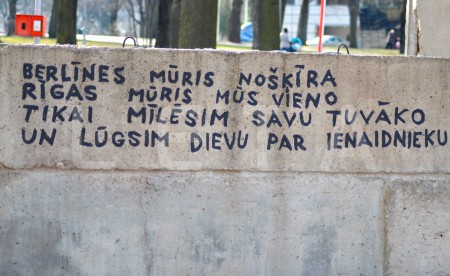 BERLĪNES MŪRIS NOŠĶĪRA
RĪGAS MŪRIS MŪS VIENO
TIKAI MĪLĒSIM SAVU TUVĀKO
UN LŪGSIM DIEVU PAR IENAIDNIEKU